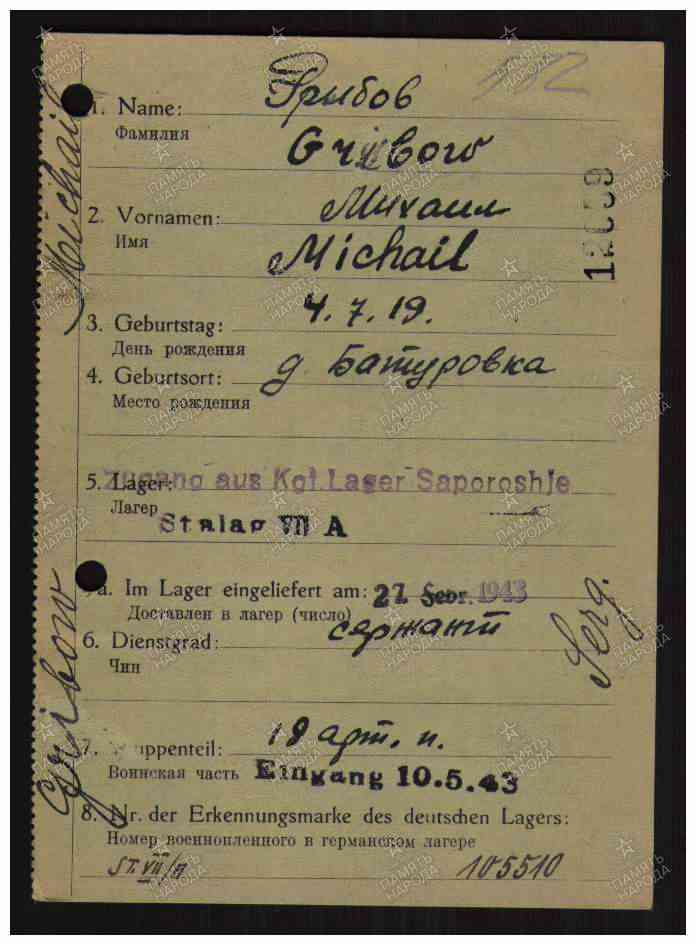 582
1. Name: Грибов
Фамилия
Gribow
12659
2. Vornamen: Михаил
Имя
Michail
3. Geburtstag: 4.7.19.
День рождения
4. Geburtsort: д Батуровка
Место рождения
Zugang aus Kgf.Lager Saporoshje
5. Lager:
Лагер
Stalag VII A
5a. Im Lager eingeliefert am: 27. Febr. 1943
Доставлен в лагер (число)
6. Dienstgrad: сержант
Чин
Serg.
7. Truppenteil: 19 арт. п.
Воинская часть Eingang 10.5.43
8. Nr. der Erkennungsmarke des deutschen Lagers:
Номер военнопленного в германском лагере
ST. VII/A 105510
Gribow Michail
ПАМЯТЬ НАРОДА